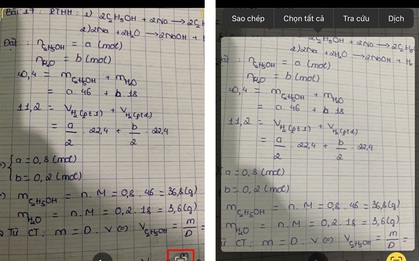 Bài 17: PTHH: 1) 2C₂H₅OH + 2Na → 2C₂H
2) 2Na + 2H₂O → 2NaOH + H
Đặt: n C₂H₅OH = a (mol)
n H₂O = b (mol)
40,4 = m C₂H₅OH + m H₂O
= a. 46 + b. 18
11,2 = V H₂(pt1) + V H₂(pt2)
= a/2 . 22,4 + b/2 . 22,4
a = 0,8 (mol)
b = 0,2 (mol)
m C₂H₅OH = n. M = 0,8. 46 = 36,8 (g)
m H₂O = n. M = 0,2. 18 = 3,6 (g)
Từ CT: m = D. V ⇔ V C₂H₅OH = m/D =
Sao chép Chọn tất cả Tra cứu Dịch
2C₂H₅OH + 2Na → 2C₂
2) 2Na + 2H₂O → 2NaOH + H
n C₂H₅OH = a (mol)
n H₂O = b (mol)
40,4 = m C₂H₅OH + m H₂O
= a. 46 + b. 18
11,2 = V H₂(pt1) + V H₂(pt2)
= a/2 . 22,4 + b/2 . 22,4
a = 0,8 (mol)
b = 0,2 (mol)
m C₂H₅OH = n. M = 0,8. 46 = 36,8 (g)
m H₂O = n. M = 0,2. 18 = 3,6 (g)
CT: m = D. V ⇔ V C₂H₅OH = m/D =